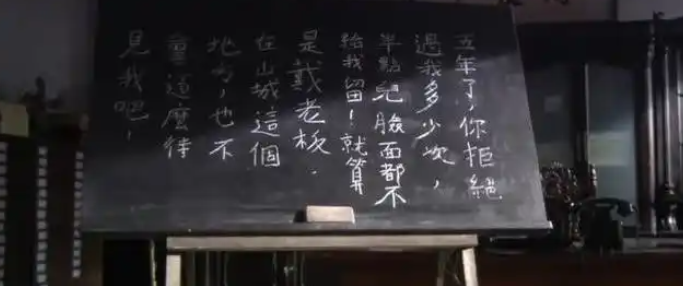 五年了，你拒絕
過我多少次，
半點兒臉面都不
給我留！就算
是戴老板，
在山城這個
地方，也不
會這麼待
見我吧，